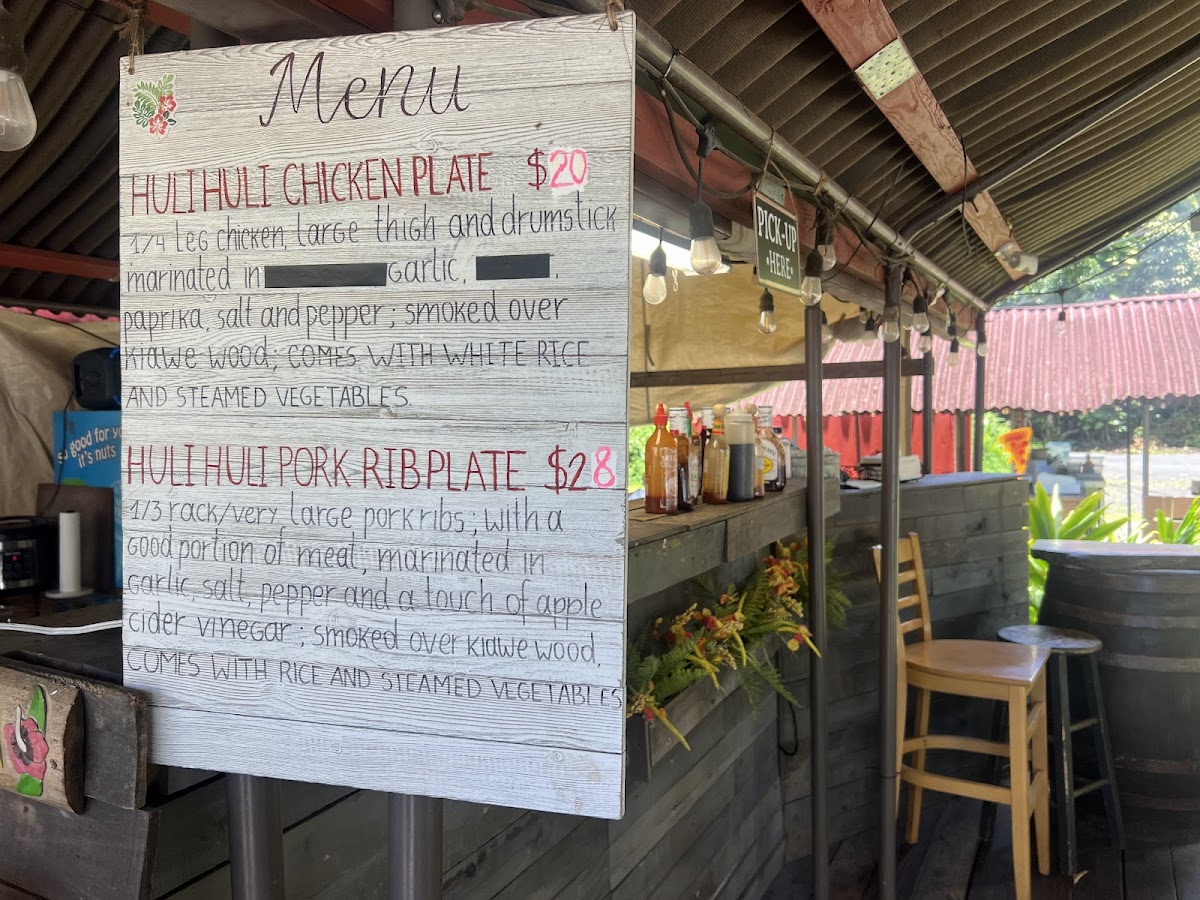 Menu
HULI HULI CHICKEN PLATE $20
1/4 leg chicken, large thigh and drumstick
marinated in garlic, ,
paprika, salt and pepper; smoked over
kiawe wood; COMES WITH WHITE RICE
AND STEAMED VEGETABLES.
HULI HULI PORK RIB PLATE $28
1/3 rack/very large pork ribs; with a
good portion of meat, marinated in
garlic, salt, pepper and a touch of apple
cider vinegar; smoked over kiawe wood,
COMES WITH RICE AND STEAMED VEGETABLES
PICK-UP
•HERE•
good for
it's nuts